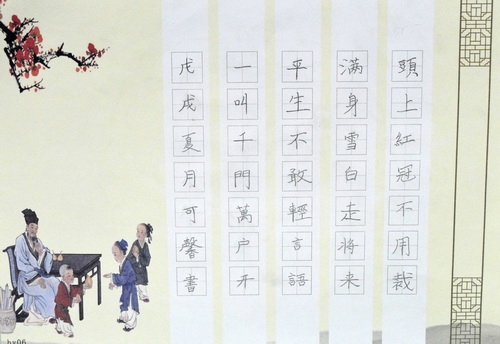 頭上紅冠不用裁
满身雪白走將来
平生不敢輕言語
一叫千門萬户开
戊戌夏月可馨書